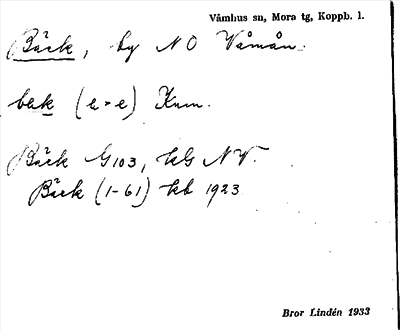 Våmhus sn, Mora tg, Koppb. l.
Bäck, by N O Våmån.
bεk (ε = e) Knm.
Bäck G103, kG NV.
Bäck (1-61) kb 1923
Bror Lindén 1933